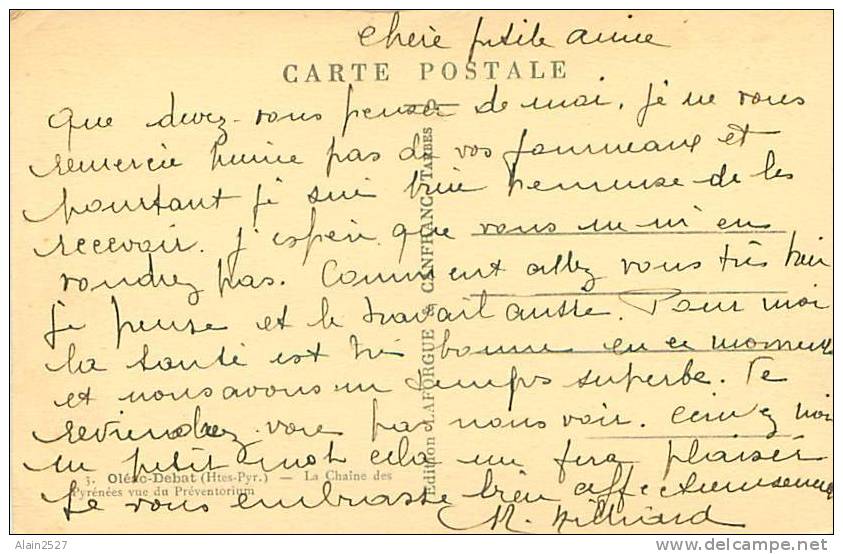 Chère petite amie
CARTE POSTALE
Que devez-vous penser de moi. Je ne vous
remercie même pas de vos journeaux et
pourtant je suis bien heureuse de les
recevoir. J'espère que vous ne m'en
voudrez pas. Comment allez vous très bien
je pense et le travail aussi. Pour moi
la santé est très bonne en ce moment
et nous avons un temps superbe. Ne
reviendrez-vous pas nous voir. Ecrivez moi
un petit mot cela me fera plaisir
Je vous embrasse bien affectueusement
M.
3. Oléac-Debat (Htes-Pyr.) — La Chaîne des
Pyrénées vue du Préventorium
Edition LAFORGUE & CANFRANC TARBES
Alain2527
http://www.delcampe.net